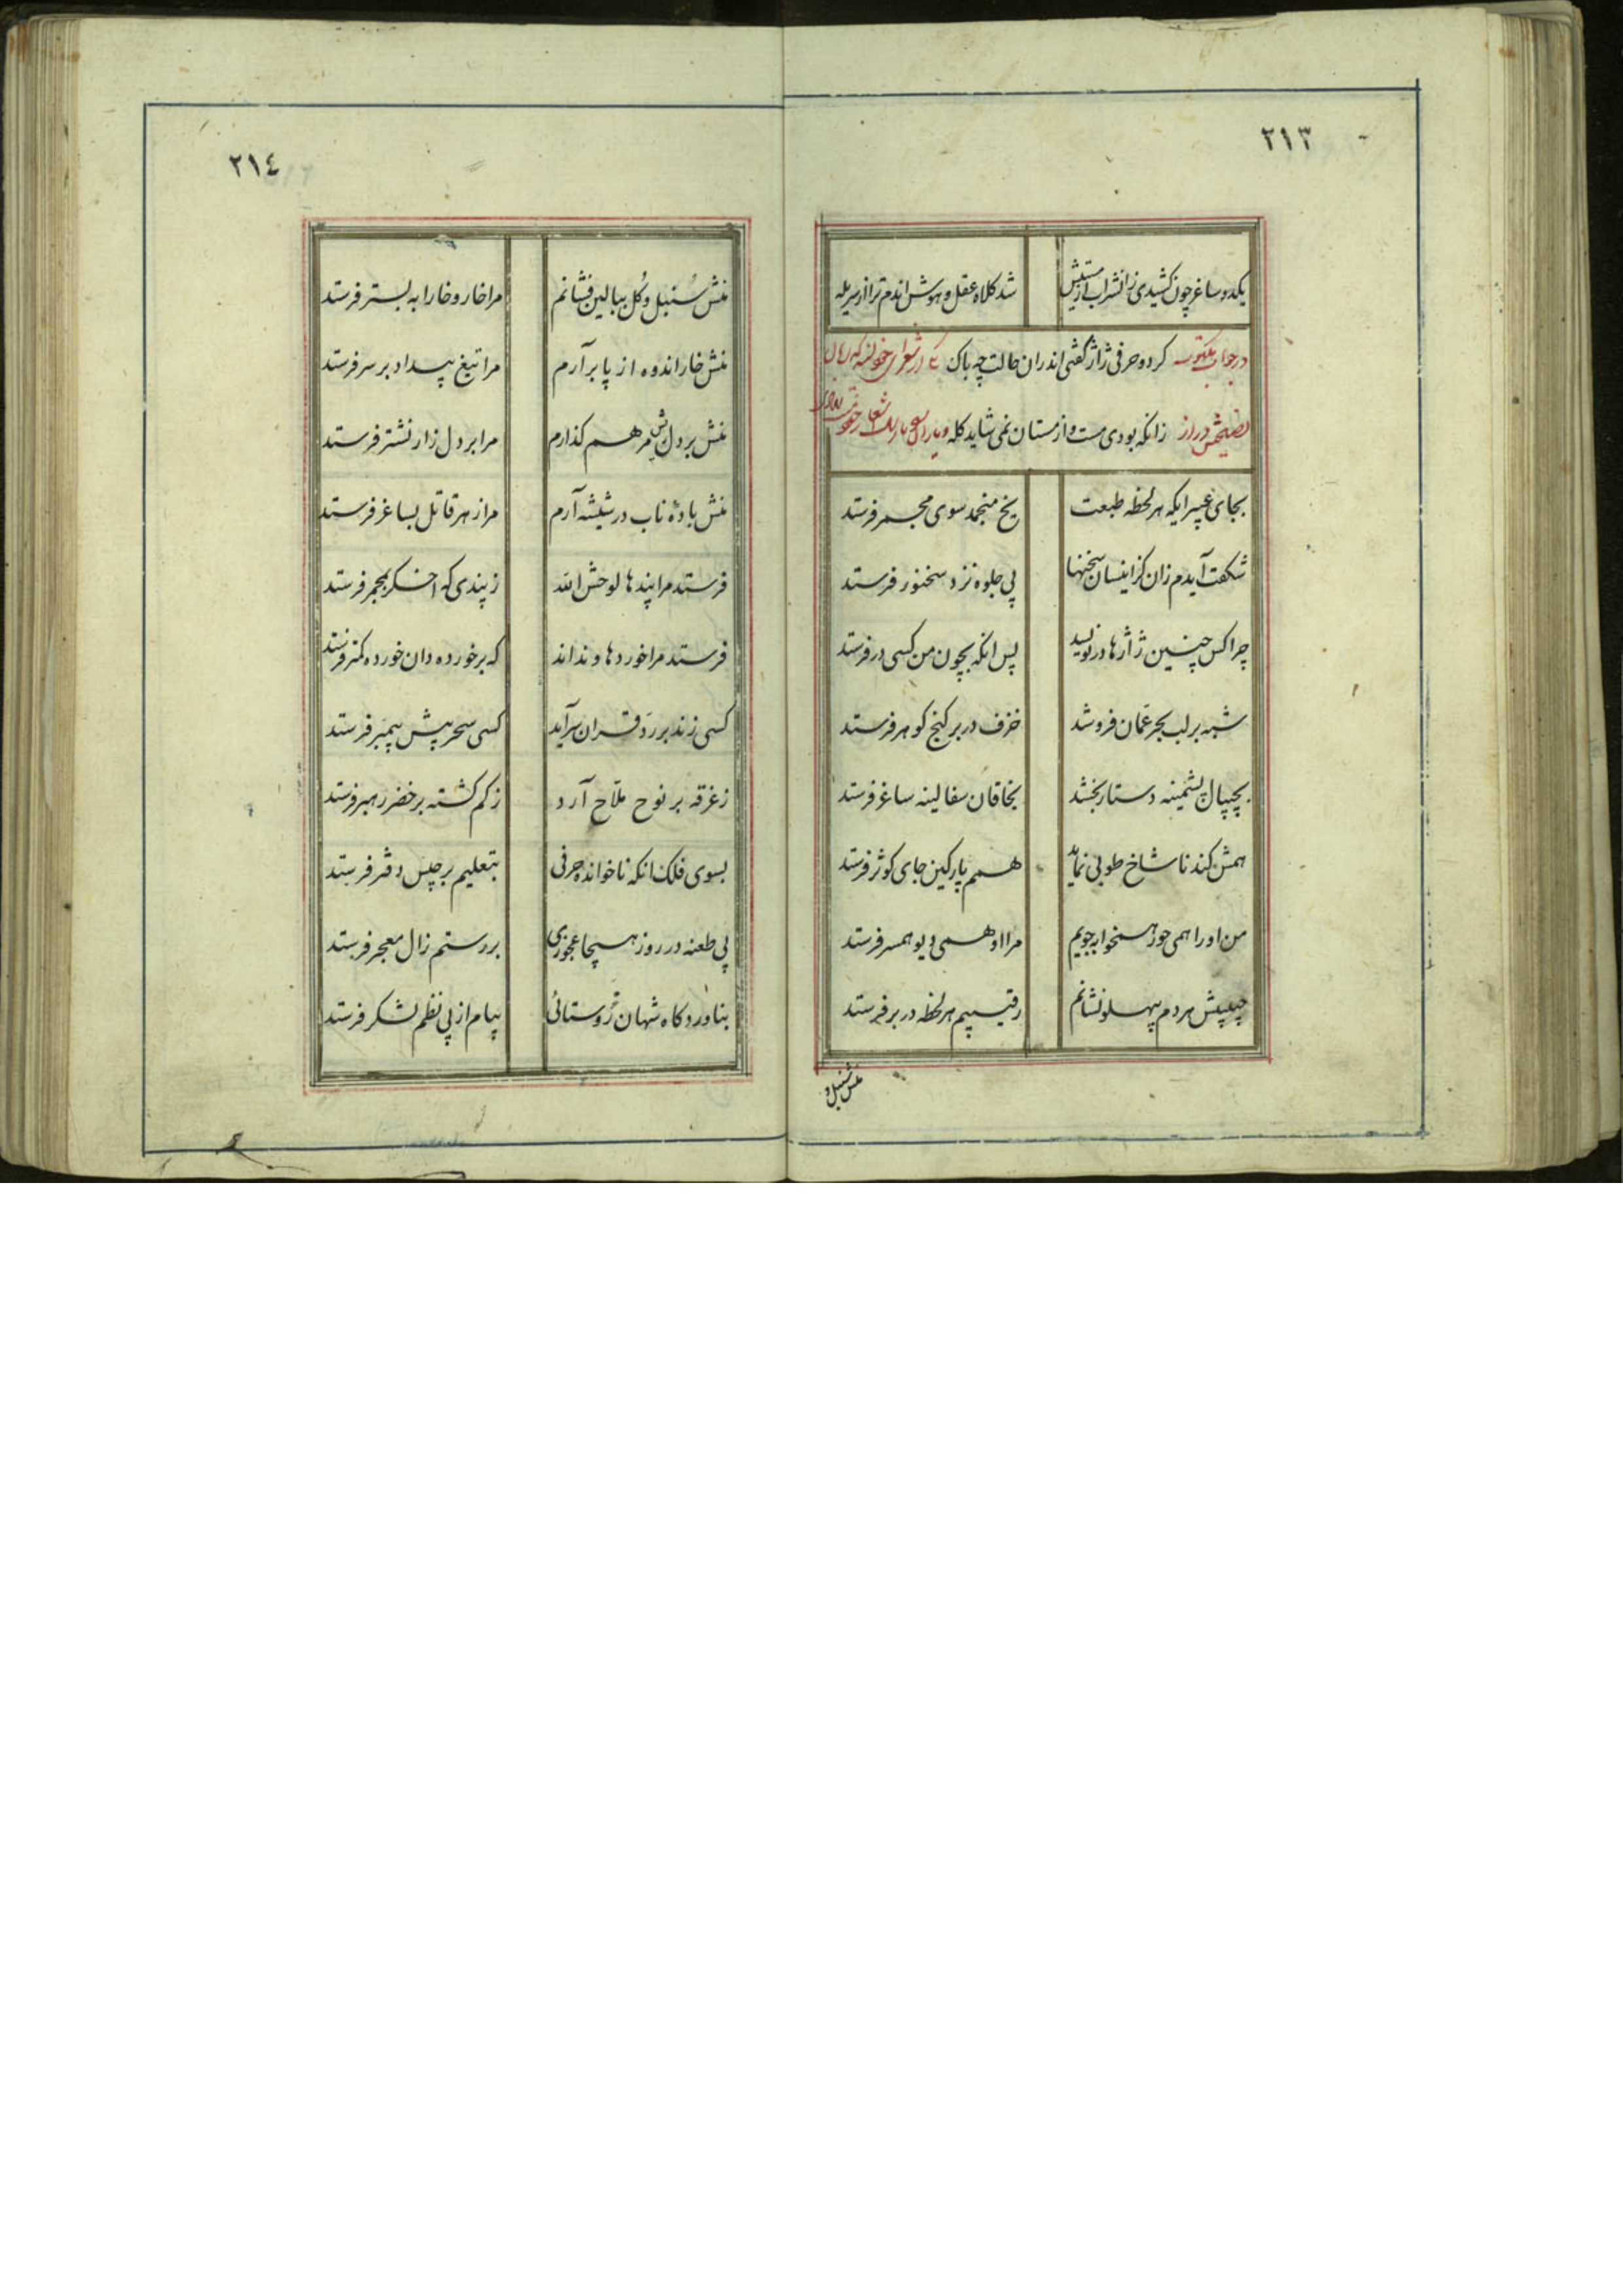 ٢١٣
یکدو ساغر چون کشیدی زانشراب آتشین
شد کلاه عقل و هوش اندم ترا از سر یله
در جواب مکتوب کرد و حرفی ژاژ گفتی اندران حالت چه باک
زانکه بودی مست و از مستان نمی شاید کله
بجای عبیر ایکه هر لحظه طبعت
یخ منجمد سوی مجمر فرستد
شکفت آیدم زان کز اینسان سخنها
پی جلوه نزد سخنور فرستد
چرا کس چنین ژاژها در نویسد
پس انکه بچون من کسی در فرستد
شبه بر لب بحر عمان فروشد
خزف در بر کنج کوهر فرستد
بچیپال پشمینه دستار بخشد
بخاقان سفالینه ساغر فرستد
همش کند نا شاخ طوبی نماید
هم پارکین جای کوثر فرستد
من او را همی حور همخوابه جویم
مرا او همی دیو همسر فرستد
حبیبش هر دم پهلو نشانم
رقیبم هر لحظه در بر فرستد
منش سنبل و
٢١٤
منش سنبل و کل ببالین فشانم
مرا خار و خارا به بستر فرستد
منش خار اندوه از پا بر آرم
مرا تیغ بیداد بر سر فرستد
منش بر دل ریش مرهم کذارم
مرا بر دل زار نشتر فرستد
منش بادهٔ ناب در شیشه آرم
مرا زهر قاتل بساغر فرستد
فرستد مرا پندها لوحش الله
ز پندی که اخکر بمجمر فرستد
فرستد مرا خوردها و نداند
که بر خورده دان خورده کمتر فرستد
کسی زند بر رد قران سرآید
کسی سحر پیش پیمبر فرستد
ز غرقه بر نوح ملاح آرد
ز کم کشته بر خضر رهبر فرستد
بسوی فلک انکه ناخوانده حرفی
بتعلیم برجیس دفتر فرستد
پی طعنه در روز هیجا عجوزی
بر رستم زال معجر فرستد
بناورد کاه شهان روستائی
پیام از پی نظم لشکر فرستد